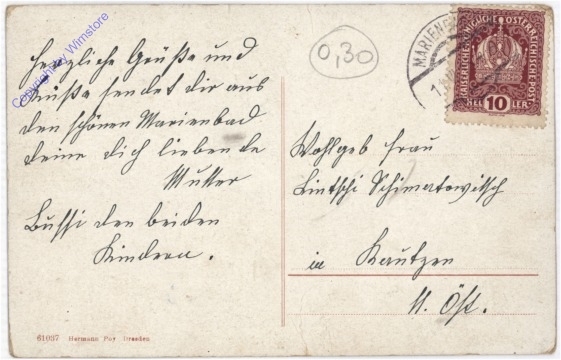 Herzliche Grüße und
Küße sendet dir aus
den schönen Marienbad
deine dich liebende
Mutter
Bussi den beiden
Kindern.
Copyright by Wimstore
0,30
MARIENB
KAISERLICHE KÖNIGLICHE ÖSTERREICHISCHE POST
10
HELLER
Wohlgeb Frau
Lintschi Schimatowitsch
in Kautzen
N. Öst.
61037 Hermann Poy Dresden